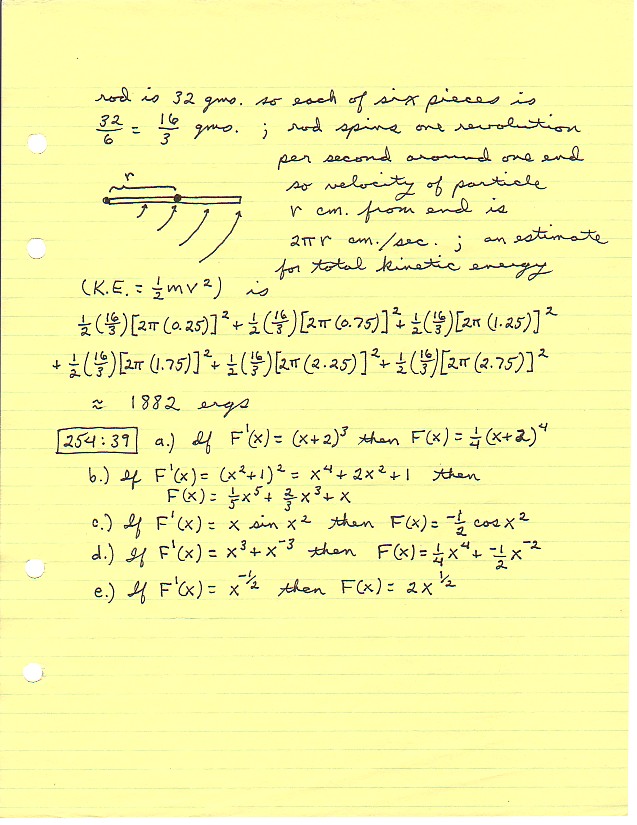 rod is 32 gms. so each of six pieces is
32/6 = 16/3 gms. ; rod spins one revolution
per second around one end
r
so velocity of particle
r cm. from end is
2πr cm./sec. ; an estimate
for total kinetic energy
(K.E. = 1/2 mv²) is
1/2(16/3)[2π(0.25)]² + 1/2(16/3)[2π(0.75)]² + 1/2(16/3)[2π(1.25)]²
+ 1/2(16/3)[2π(1.75)]² + 1/2(16/3)[2π(2.25)]² + 1/2(16/3)[2π(2.75)]²
≈ 1882 ergs
254:39 a.) If F'(x) = (x+2)³ then F(x) = 1/4(x+2)⁴
b.) If F'(x) = (x²+1)² = x⁴ + 2x² + 1 then
F(x) = 1/5x⁵ + 2/3x³ + x
c.) If F'(x) = x sin x² then F(x) = -1/2 cos x²
d.) If F'(x) = x³ + x⁻³ then F(x) = 1/4x⁴ + -1/2x⁻²
e.) If F'(x) = x^-1/2 then F(x) = 2x^1/2